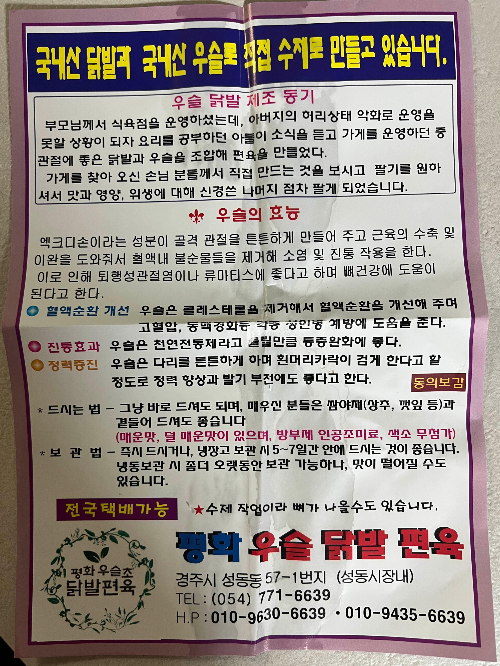 국내산 닭발과 국내산 우슬로 직접 수제로 만들고 있습니다.
우슬 닭발 제조 동기
부모님께서 식육점을 운영하셨는데, 아버지의 허리상태 악화로 운영을
못할 상황이 되자 요리를 공부하던 아들이 소식을 듣고 가게를 운영하던 중
관절에 좋은 닭발과 우슬을 조합해 편육을 만들었다.
가게를 찾아 오신 손님 분들께서 직접 만드는 것을 보시고 팔기를 원하
셔서 맛과 영양, 위생에 대해 신경쓴 나머지 점차 팔게 되었습니다.
우슬의 효능
엑크디손이라는 성분이 골격 관절을 튼튼하게 만들어 주고 근육의 수축 및
이완을 도와줘서 혈액내 불순물들을 제거해 소염 및 진통 작용을 한다.
이로 인해 퇴행성관절염이나 류마티스에 좋다고 하며 뼈건강에 도움이
된다고 한다.
혈액순환 개선 우슬은 콜레스테롤을 제거해서 혈액순환을 개선해 주며
고혈압, 동맥경화등 각종 성인병 예방에 도움을 준다.
진통효과 우슬은 천연진통제라고 불릴만큼 통증완화에 좋다.
정력증진 우슬은 다리를 튼튼하게 하며 흰머리카락이 검게 한다고 할
정도로 정력 향상과 발기 부전에도 좋다고 한다.
동의보감
* 드시는 법 - 그냥 바로 드셔도 되며, 매우신 분들은 쌈야채(상추, 깻잎 등)과
곁들어 드셔도 좋습니다
(매운맛, 덜 매운맛이 있으며, 방부제 인공조미료, 색소 무첨가)
* 보 관 법 - 즉시 드시거나, 냉장고 보관 시 5~7일간 안에 드시는 것이 좋습니다.
냉동보관 시 좀더 오랫동안 보관 가능하나, 맛이 떨어질 수도
있습니다.
전국택배가능 ★수제 작업이라 뼈가 나올수도 있습니다.
평화 우슬초
닭발편육
평화 우슬 닭발 편육
경주시 성동동 57-1번지 (성동시장내)
TEL : (054) 771-6639
H.P : 010-9630-6639 · 010-9435-6639